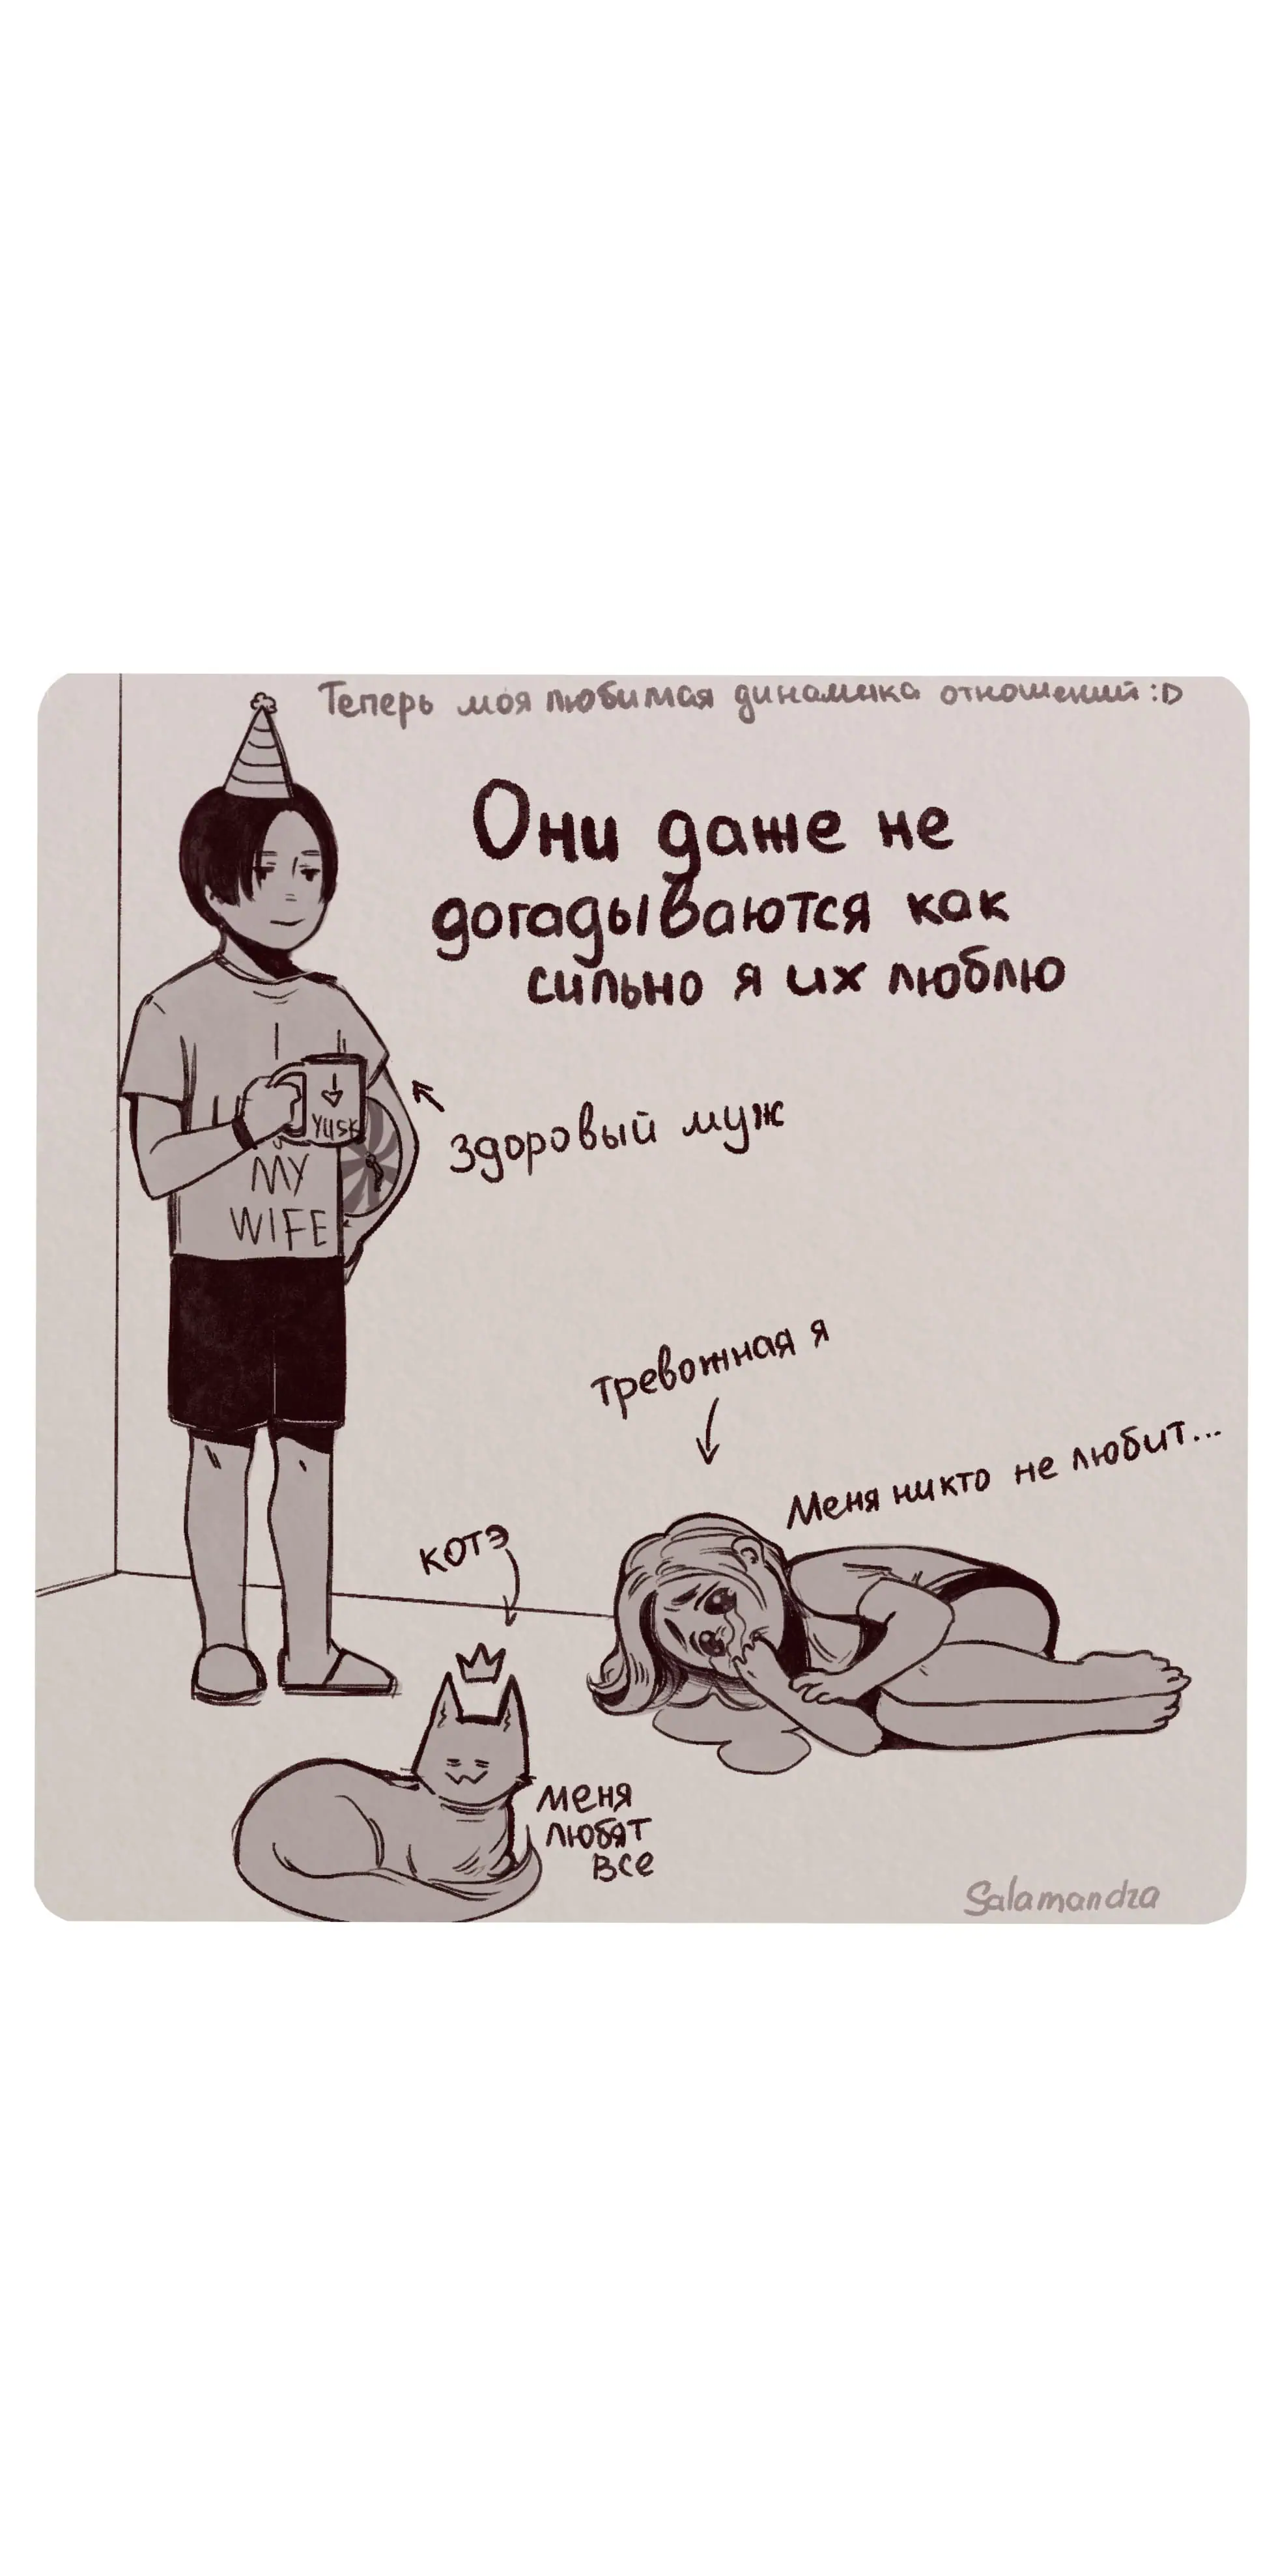 Теперь моя любимая динамика отношений :D
Они даже не
догадываются как
сильно я их люблю
здоровый муж
YUSK
MY
WIFE
тревожная я
Меня никто не любит...
котэ
меня
любят
все
Salamandra